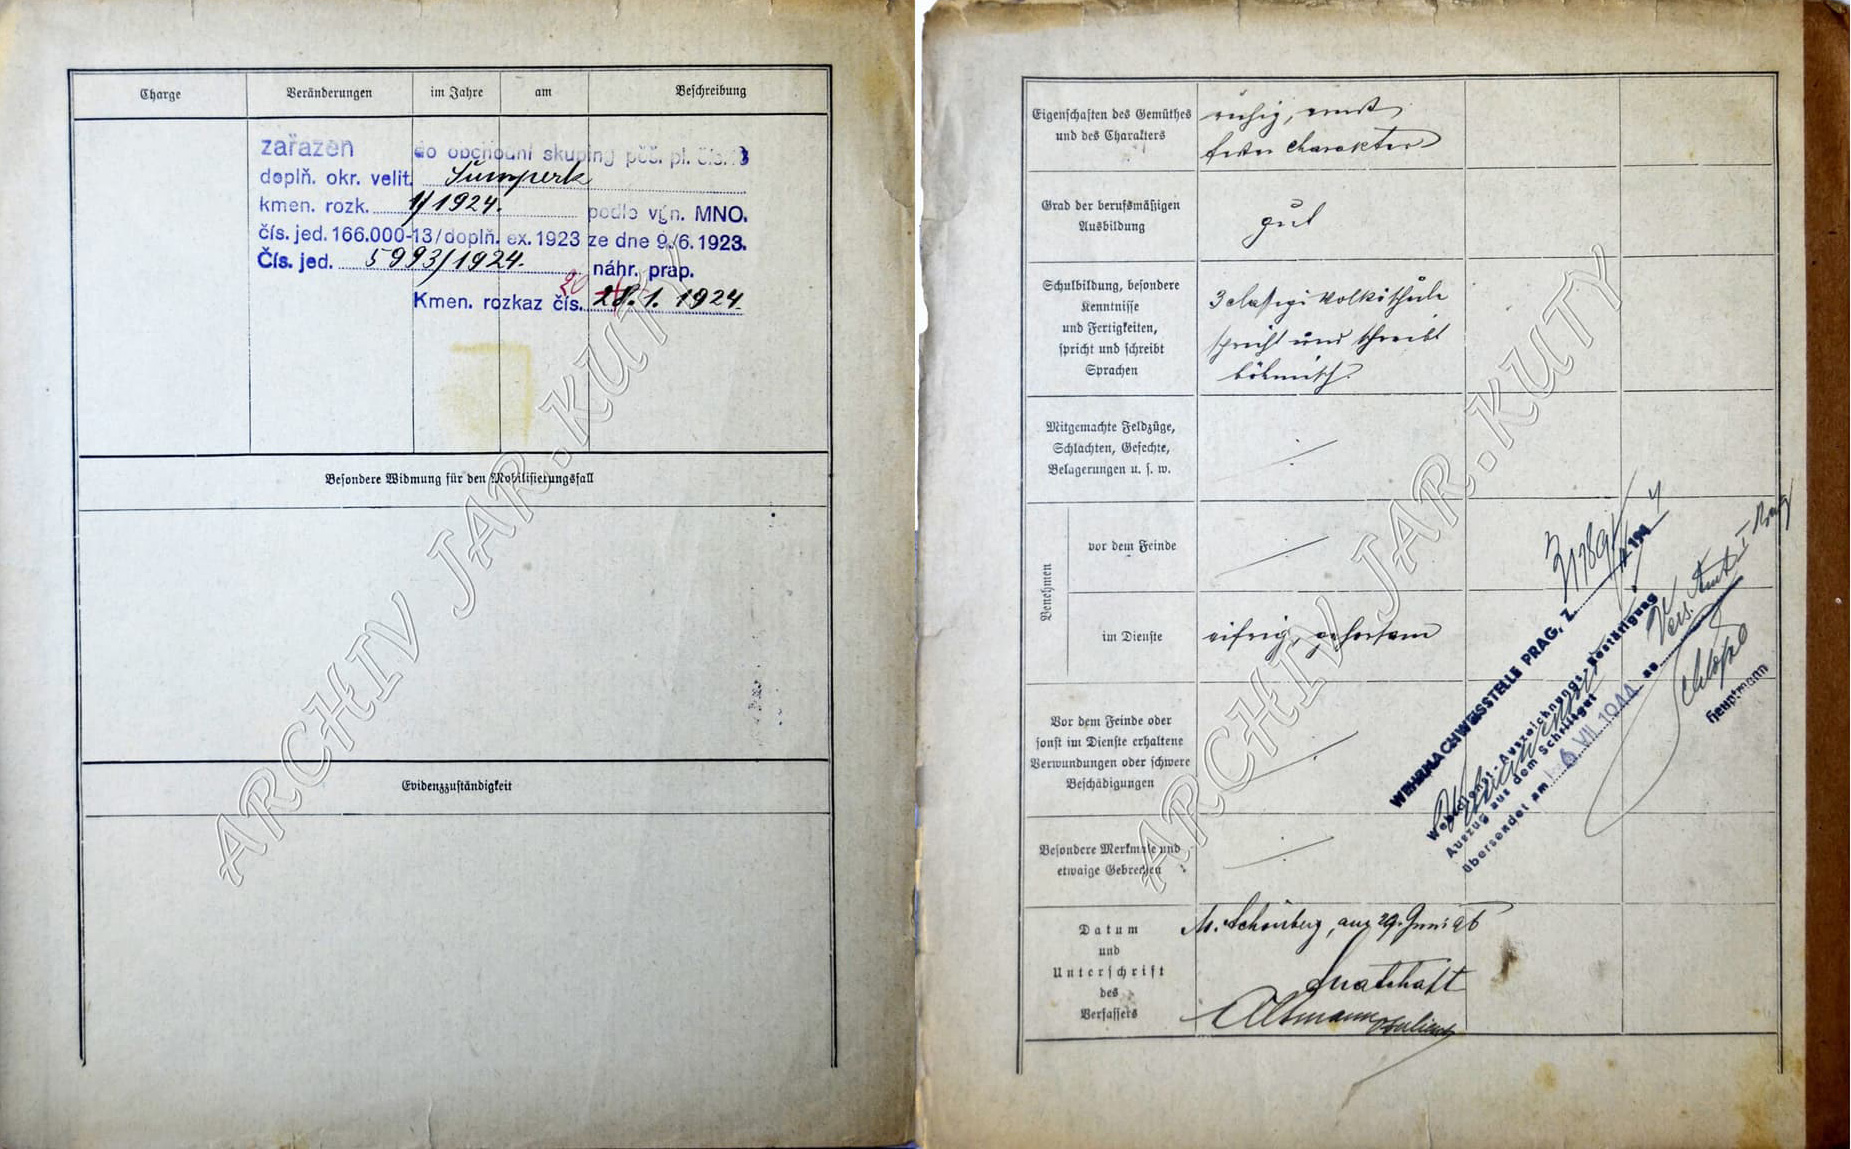 Charge
Veränderungen
im Jahre
am
Beschreibung
zařazen do obchodní skupiny pěš. pl. čís.
doplň. okr. velit. Šumperk
kmen. rozk. 1/1924. podle výn. MNO.
čís. jed. 166.000-13/doplň. ex. 1923 ze dne 9./6. 1923.
Čís. jed. 5993/1924. náhr. prap.
20
Kmen. rozkaz čís. 28. 1. 1924.
Besondere Widmung für den Mobilisierungsfall
Evidenzzuständigkeit
ARCHIV JAR.KUTY
Eigenschaften des Gemüthes
und des Charakters
ruhig, ernst,
fester Charakter
Grad der berufsmäßigen
Ausbildung
gut
Schulbildung, besondere
Kenntnisse
und Fertigkeiten,
spricht und schreibt
Sprachen
3 classige Volksschule
spricht und schreibt
böhmisch.
Mitgemachte Feldzüge,
Schlachten, Gefechte,
Belagerungen u. s. w.
Benehmen
vor dem Feinde
im Dienste
eifrig, gehorsam
Vor dem Feinde oder
sonst im Dienste erhaltene
Verwundungen oder schwere
Beschädigungen
Besondere Merkmale und
etwaige Gebrechen
Datum
und
Unterschrift
des
Verfassers
M. Schönberg, am 29. Juni 96
Altmann Oberlieut
WEHRMACHWEISSTELLE PRAG, Z.
Wehrdienst-Auszeichnungs-Bestätigung
Auszug aus dem Schriftgut
übersendet am 6. VII. 1944 an
Vers. Amt I Prag
Hauptmann
ARCHIV JAR.KUTY